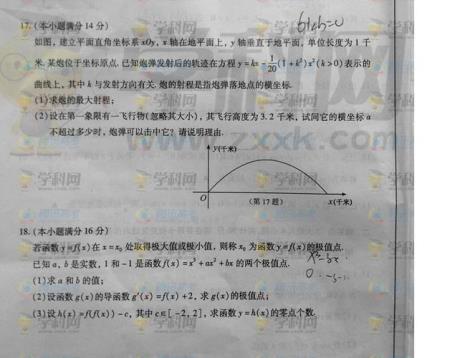 17.(本小题满分14分)
6+ab=0
如图,建立平面直角坐标系xOy,x轴在地平面上,y轴垂直于地平面,单位长度为1千
米.某炮位于坐标原点.已知炮弹发射后的轨迹在方程y=kx-1/20(1+k²)x²(k>0)表示的
曲线上,其中k与发射方向有关.炮的射程是指炮弹落地点的横坐标.
(1)求炮的最大射程;
(2)设在第一象限有一飞行物(忽略其大小),其飞行高度为3.2千米,试问它的横坐标a
不超过多少时,炮弹可以击中它?请说明理由.
y(千米)
O
(第17题)
x(千米)
18.(本小题满分16分)
若函数y=f(x)在x=x₀处取得极大值或极小值,则称x₀为函数y=f(x)的极值点.
已知a,b是实数,1和-1是函数f(x)=x³+ax²+bx的两个极值点.
x³-3x
(1)求a和b的值;
(2)设函数g(x)的导函数g'(x)=f(x)+2,求g(x)的极值点;
(3)设h(x)=f(f(x))-c,其中c∈[-2,2],求函数y=h(x)的零点个数.
学科网
www.zxxk.com